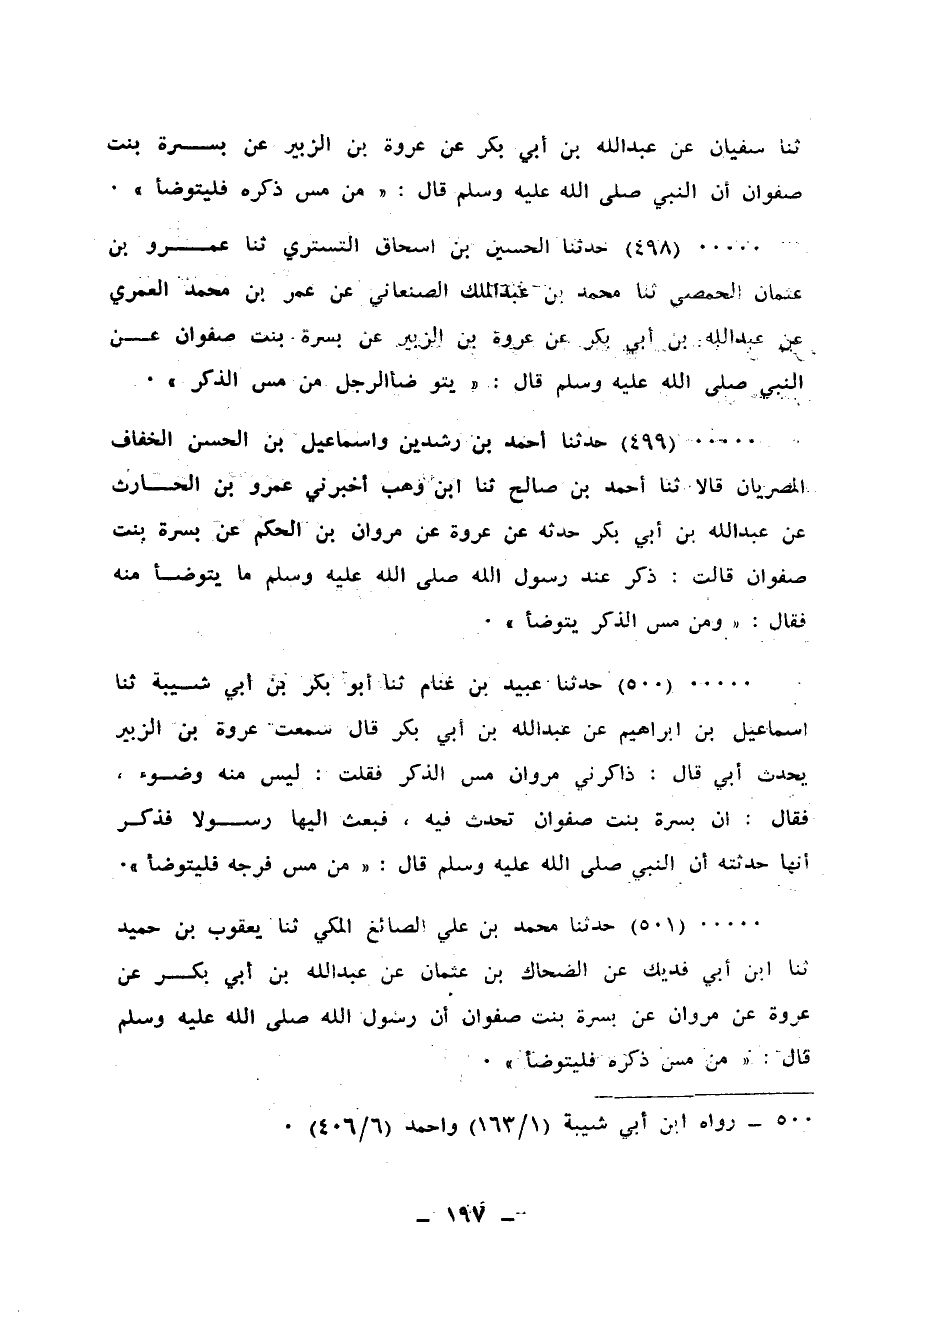 ثنا سفيان عن عبدالله بن أبي بكر عن عروة بن الزبير عن بسرة بنت
صفوان أن النبي صلى الله عليه وسلم قال : « من مس ذكره فليتوضأ » ٠
٠٠٠٠٠ (٤٩٨) حدثنا الحسين بن اسحاق التستري ثنا عمرو بن
عثمان الحمصي ثنا محمد بن عبدالملك الصنعاني عن عمر بن محمد العمري
عن عبدالله بن أبي بكر عن عروة بن الزبير عن بسرة بنت صفوان عن
النبي صلى الله عليه وسلم قال : « يتو ضأالرجل من مس الذكر » ٠
٠٠٠٠٠ (٤٩٩) حدثنا أحمد بن رشدين واسماعيل بن الحسن الخفاف
المصريان قالا ثنا أحمد بن صالح ثنا ابن وهب أخبرني عمرو بن الحارث
عن عبدالله بن أبي بكر حدثه عن عروة عن مروان بن الحكم عن بسرة بنت
صفوان قالت : ذكر عند رسول الله صلى الله عليه وسلم ما يتوضأ منه
فقال : « ومن مس الذكر يتوضأ » ٠
٠٠٠٠٠ (٥٠٠) حدثنا عبيد بن غنام ثنا أبو بكر بن أبي شيبة ثنا
اسماعيل بن ابراهيم عن عبدالله بن أبي بكر قال سمعت عروة بن الزبير
يحدث أبي قال : ذاكرني مروان مس الذكر فقلت : ليس منه وضوء ،
فقال : ان بسرة بنت صفوان تحدث فيه ، فبعث اليها رسولا فذكر
أنها حدثته أن النبي صلى الله عليه وسلم قال : « من مس فرجه فليتوضأ »٠
٠٠٠٠٠ (٥٠١) حدثنا محمد بن علي الصائغ المكي ثنا يعقوب بن حميد
ثنا ابن أبي فديك عن الضحاك بن عثمان عن عبدالله بن أبي بكر عن
عروة عن مروان عن بسرة بنت صفوان أن رسول الله صلى الله عليه وسلم
قال : « من مس ذكره فليتوضأ » ٠
٥٠٠ ــ رواه ابن أبي شيبة (١٦٣/١) واحمد (٤٠٦/٦) ٠
ــ ١٩٧ ــ